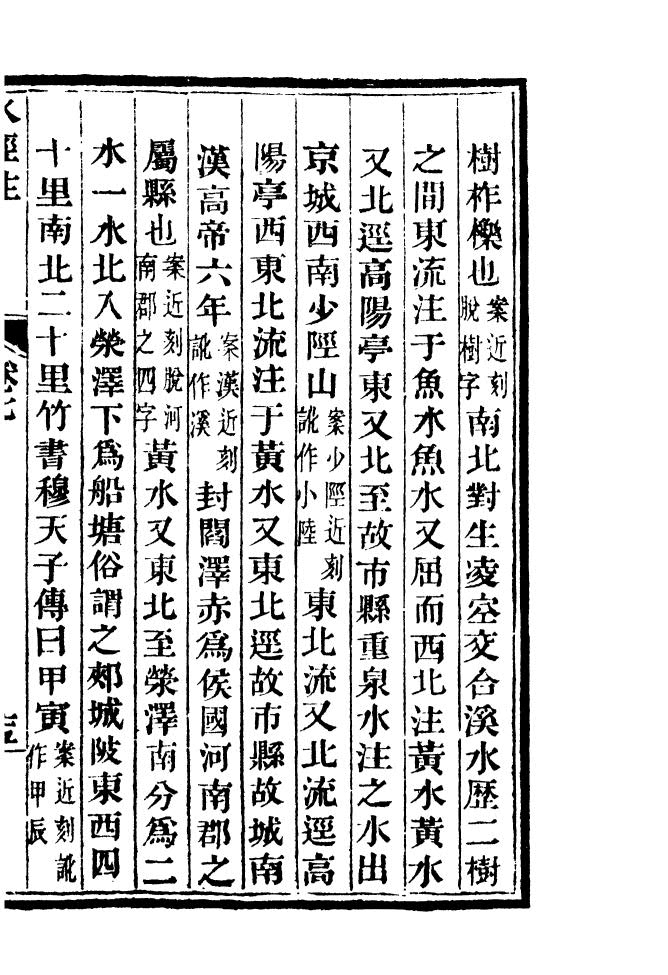 樹柞櫟也案近刻脫樹字南北對生凌空交合溪水歷二樹
之間東流注于魚水魚水又屈而西北注黃水黃水
又北逕高陽亭東又北至故市縣重泉水注之水出
京城西南少陘山案少陘近刻訛作小陸東北流又北流逕高
陽亭西東北流注于黃水又東北逕故市縣故城南
漢高帝六年案漢近刻訛作溪封閻澤赤爲侯國河南郡之
屬縣也案近刻脫河南郡之四字黃水又東北至滎澤南分爲二
水一水北入滎澤下爲船塘俗謂之郟城陂東西四
十里南北二十里竹書穆天子傳曰甲寅案近刻訛作甲辰
水經注
卷七